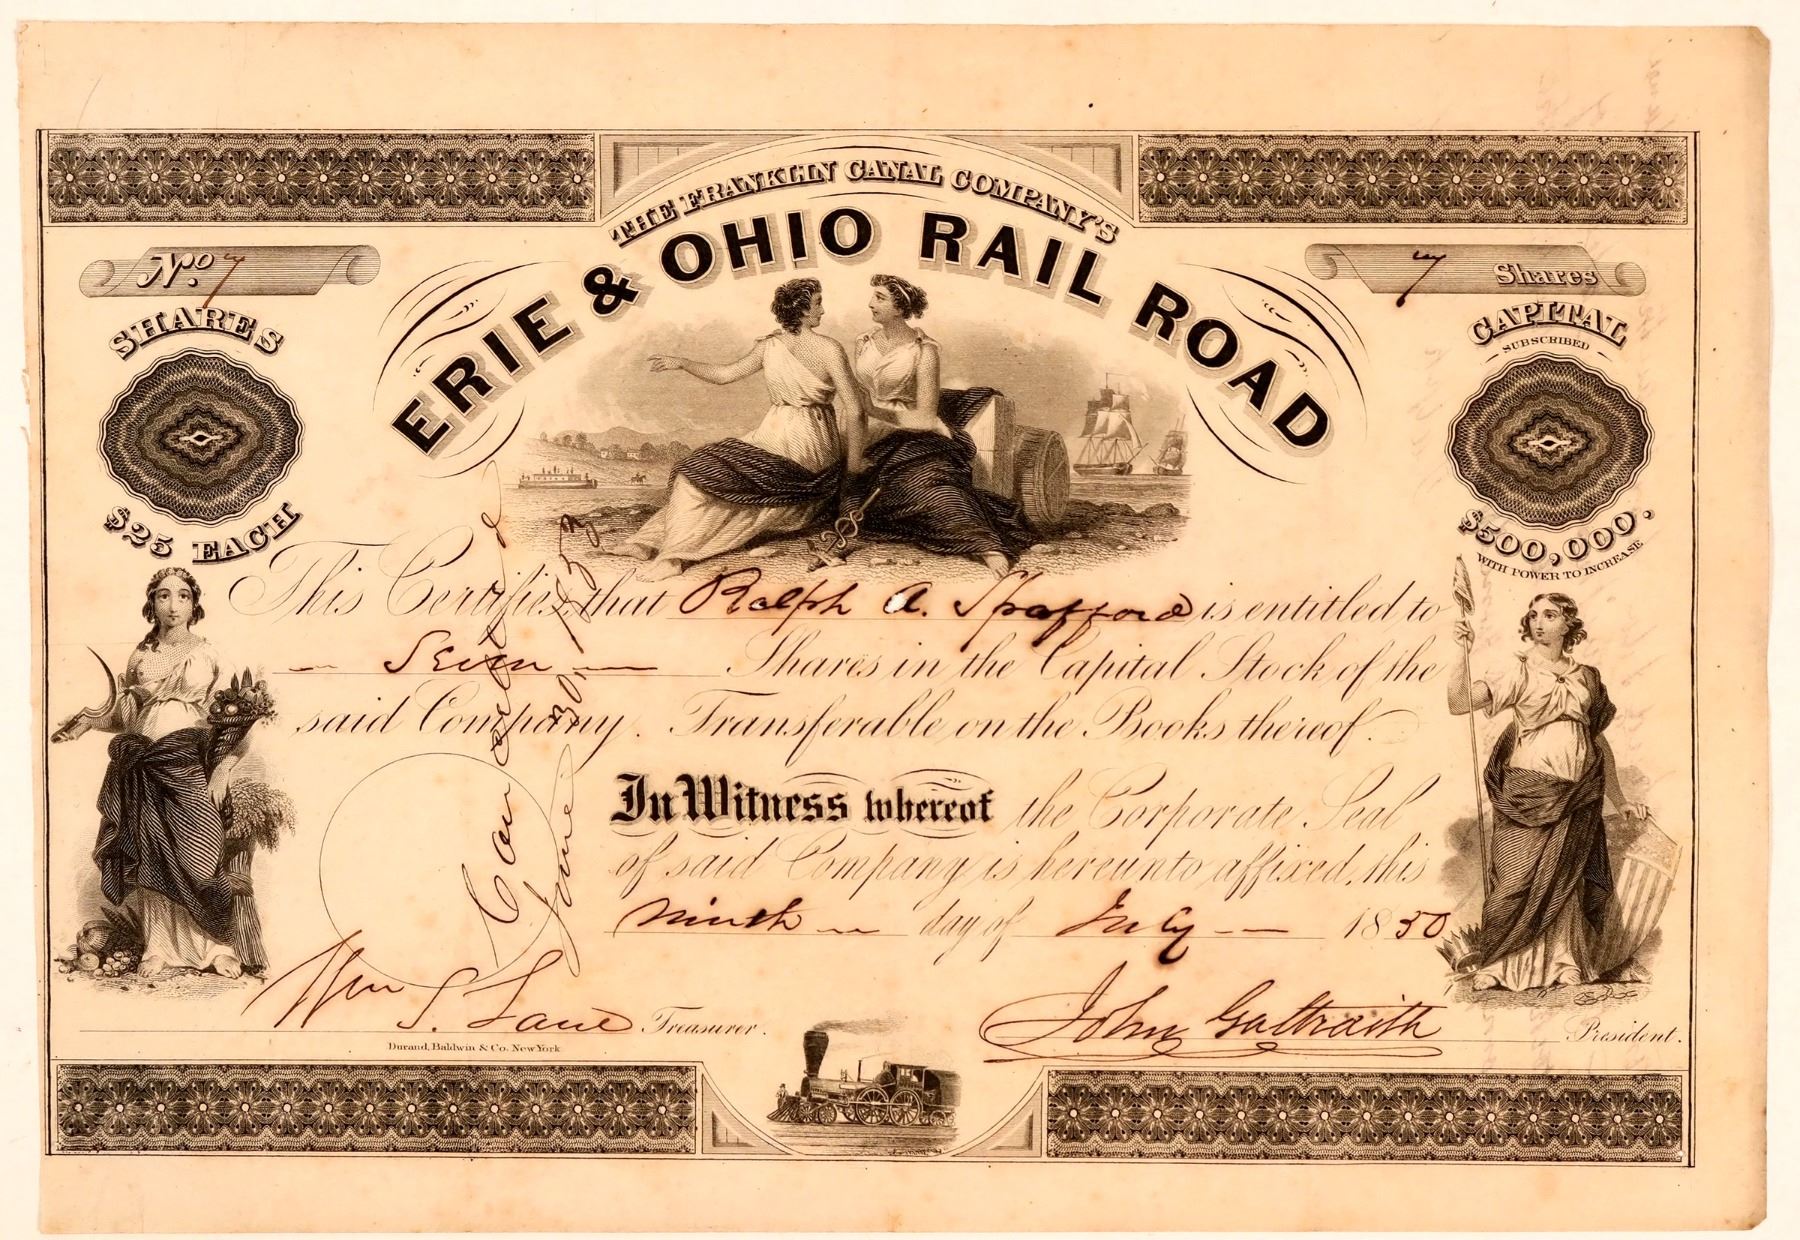 THE FRANKLIN CANAL COMPANY'S
ERIE & OHIO RAIL ROAD
No. 7
7 Shares
SHARES
$25 EACH
CAPITAL
SUBSCRIBED
$500,000.
WITH POWER TO INCREASE
This Certifies that Ralph A. Spafford is entitled to
Seven Shares in the Capital Stock of the
said Company. Transferable on the Books thereof.
In Witness whereof the Corporate Seal
of said Company is hereunto affixed, this
ninth day of July 1850
Cancelled
June 30, 1853
Wm S. Lane Treasurer.
John Galbraith President.
Durand, Baldwin & Co. New York